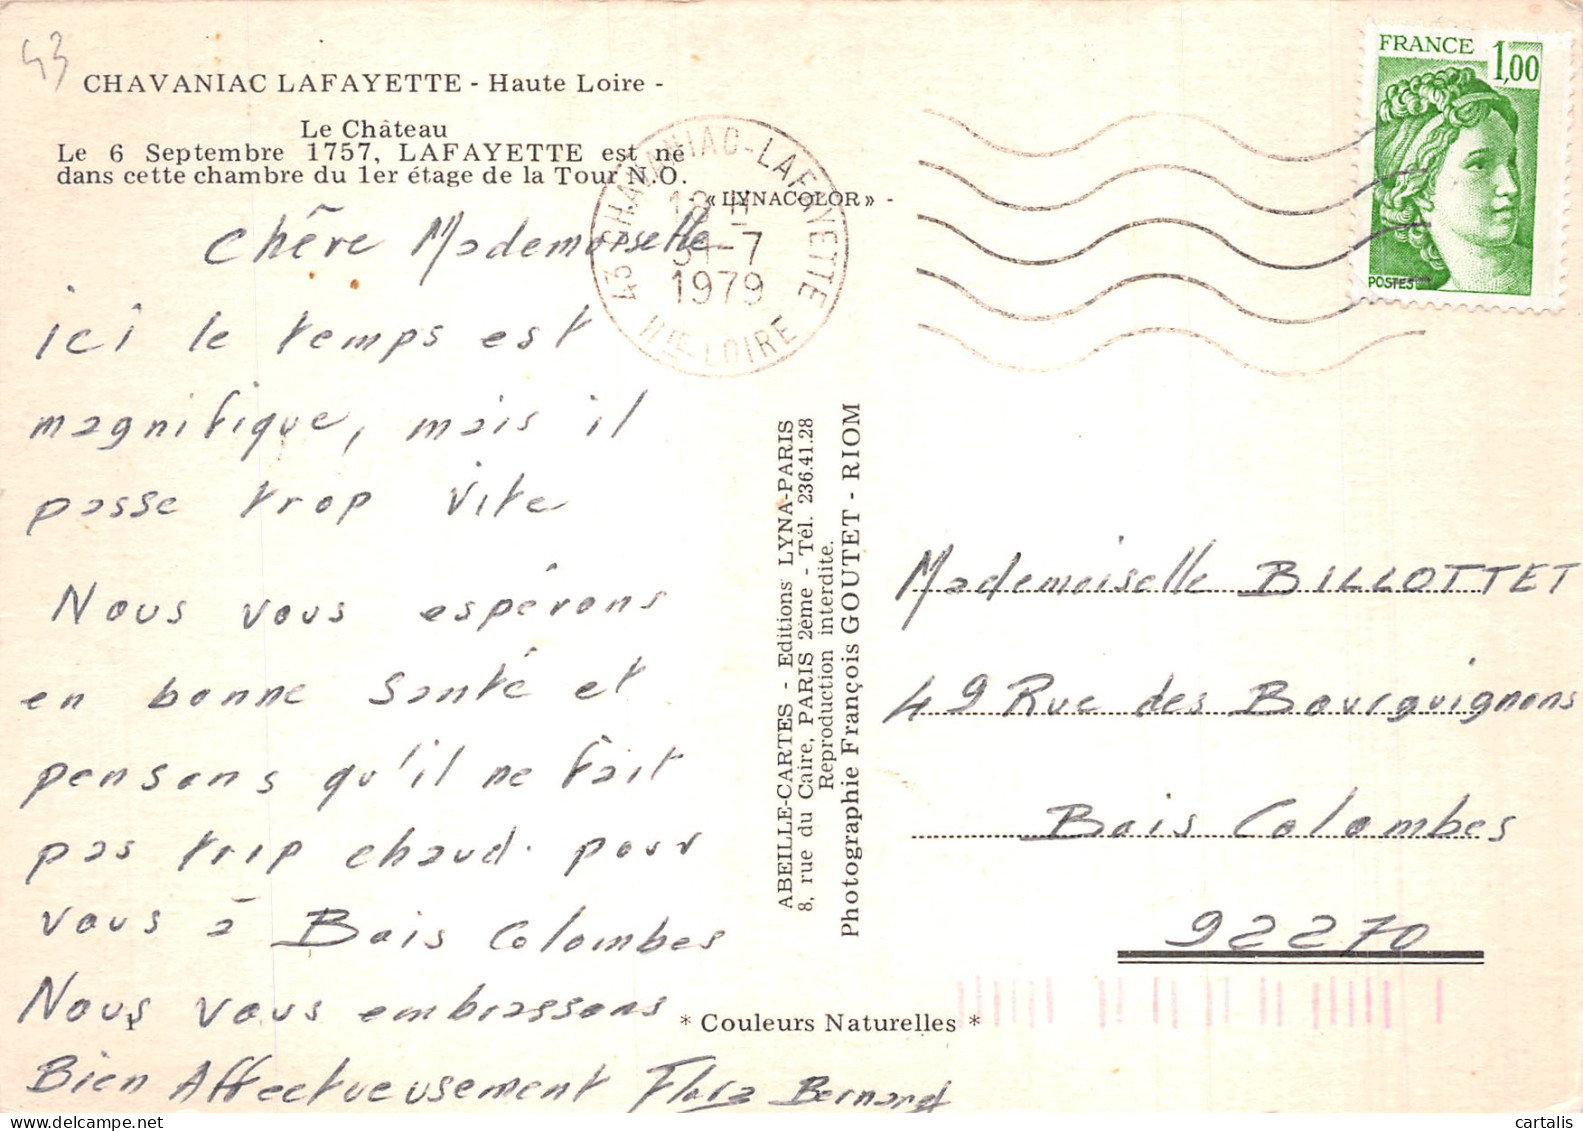 43
CHAVANIAC LAFAYETTE - Haute Loire -
Le Château
Le 6 Septembre 1757, LAFAYETTE est né
dans cette chambre du 1er étage de la Tour N.O.
« LYNACOLOR » -
43 CHAVANIAC-LAFAYETTE
31-7
1979
Hte LOIRE
FRANCE 1,00
POSTES
Chêre Mademoiselle
ici le temps est
magnifique, mais il
passe trop vite
Nous vous espérons
en bonne santé et
pensons qu'il ne fait
pas trop chaud. pour
vous à Bois Colombes
Nous vous embrassons
Bien Affectueusement Flora Bernard
ABEILLE-CARTES - Editions LYNA-PARIS
8, rue du Caire, PARIS 2ème - Tél. 236.41.28
Reproduction interdite.
Photographie François GOUTET - RIOM
Mademoiselle BILLOTTET
49 Rue des Bourguignons
Bois Colombes
92270
* Couleurs Naturelles *
cartalis